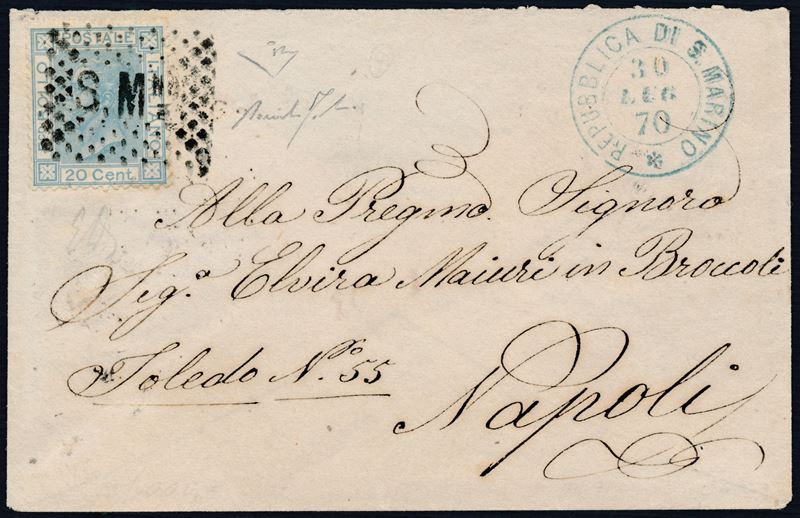 POSTALE
BOLLO
ITALIANO
20 Cent.
S. MARINO
REPUBBLICA DI S. MARINO
30
LUG
70
Alla Pregma. Signora
Sigᵃ. Elvira Maiuri in Broccoli
Toledo Nº. 55
Napoli